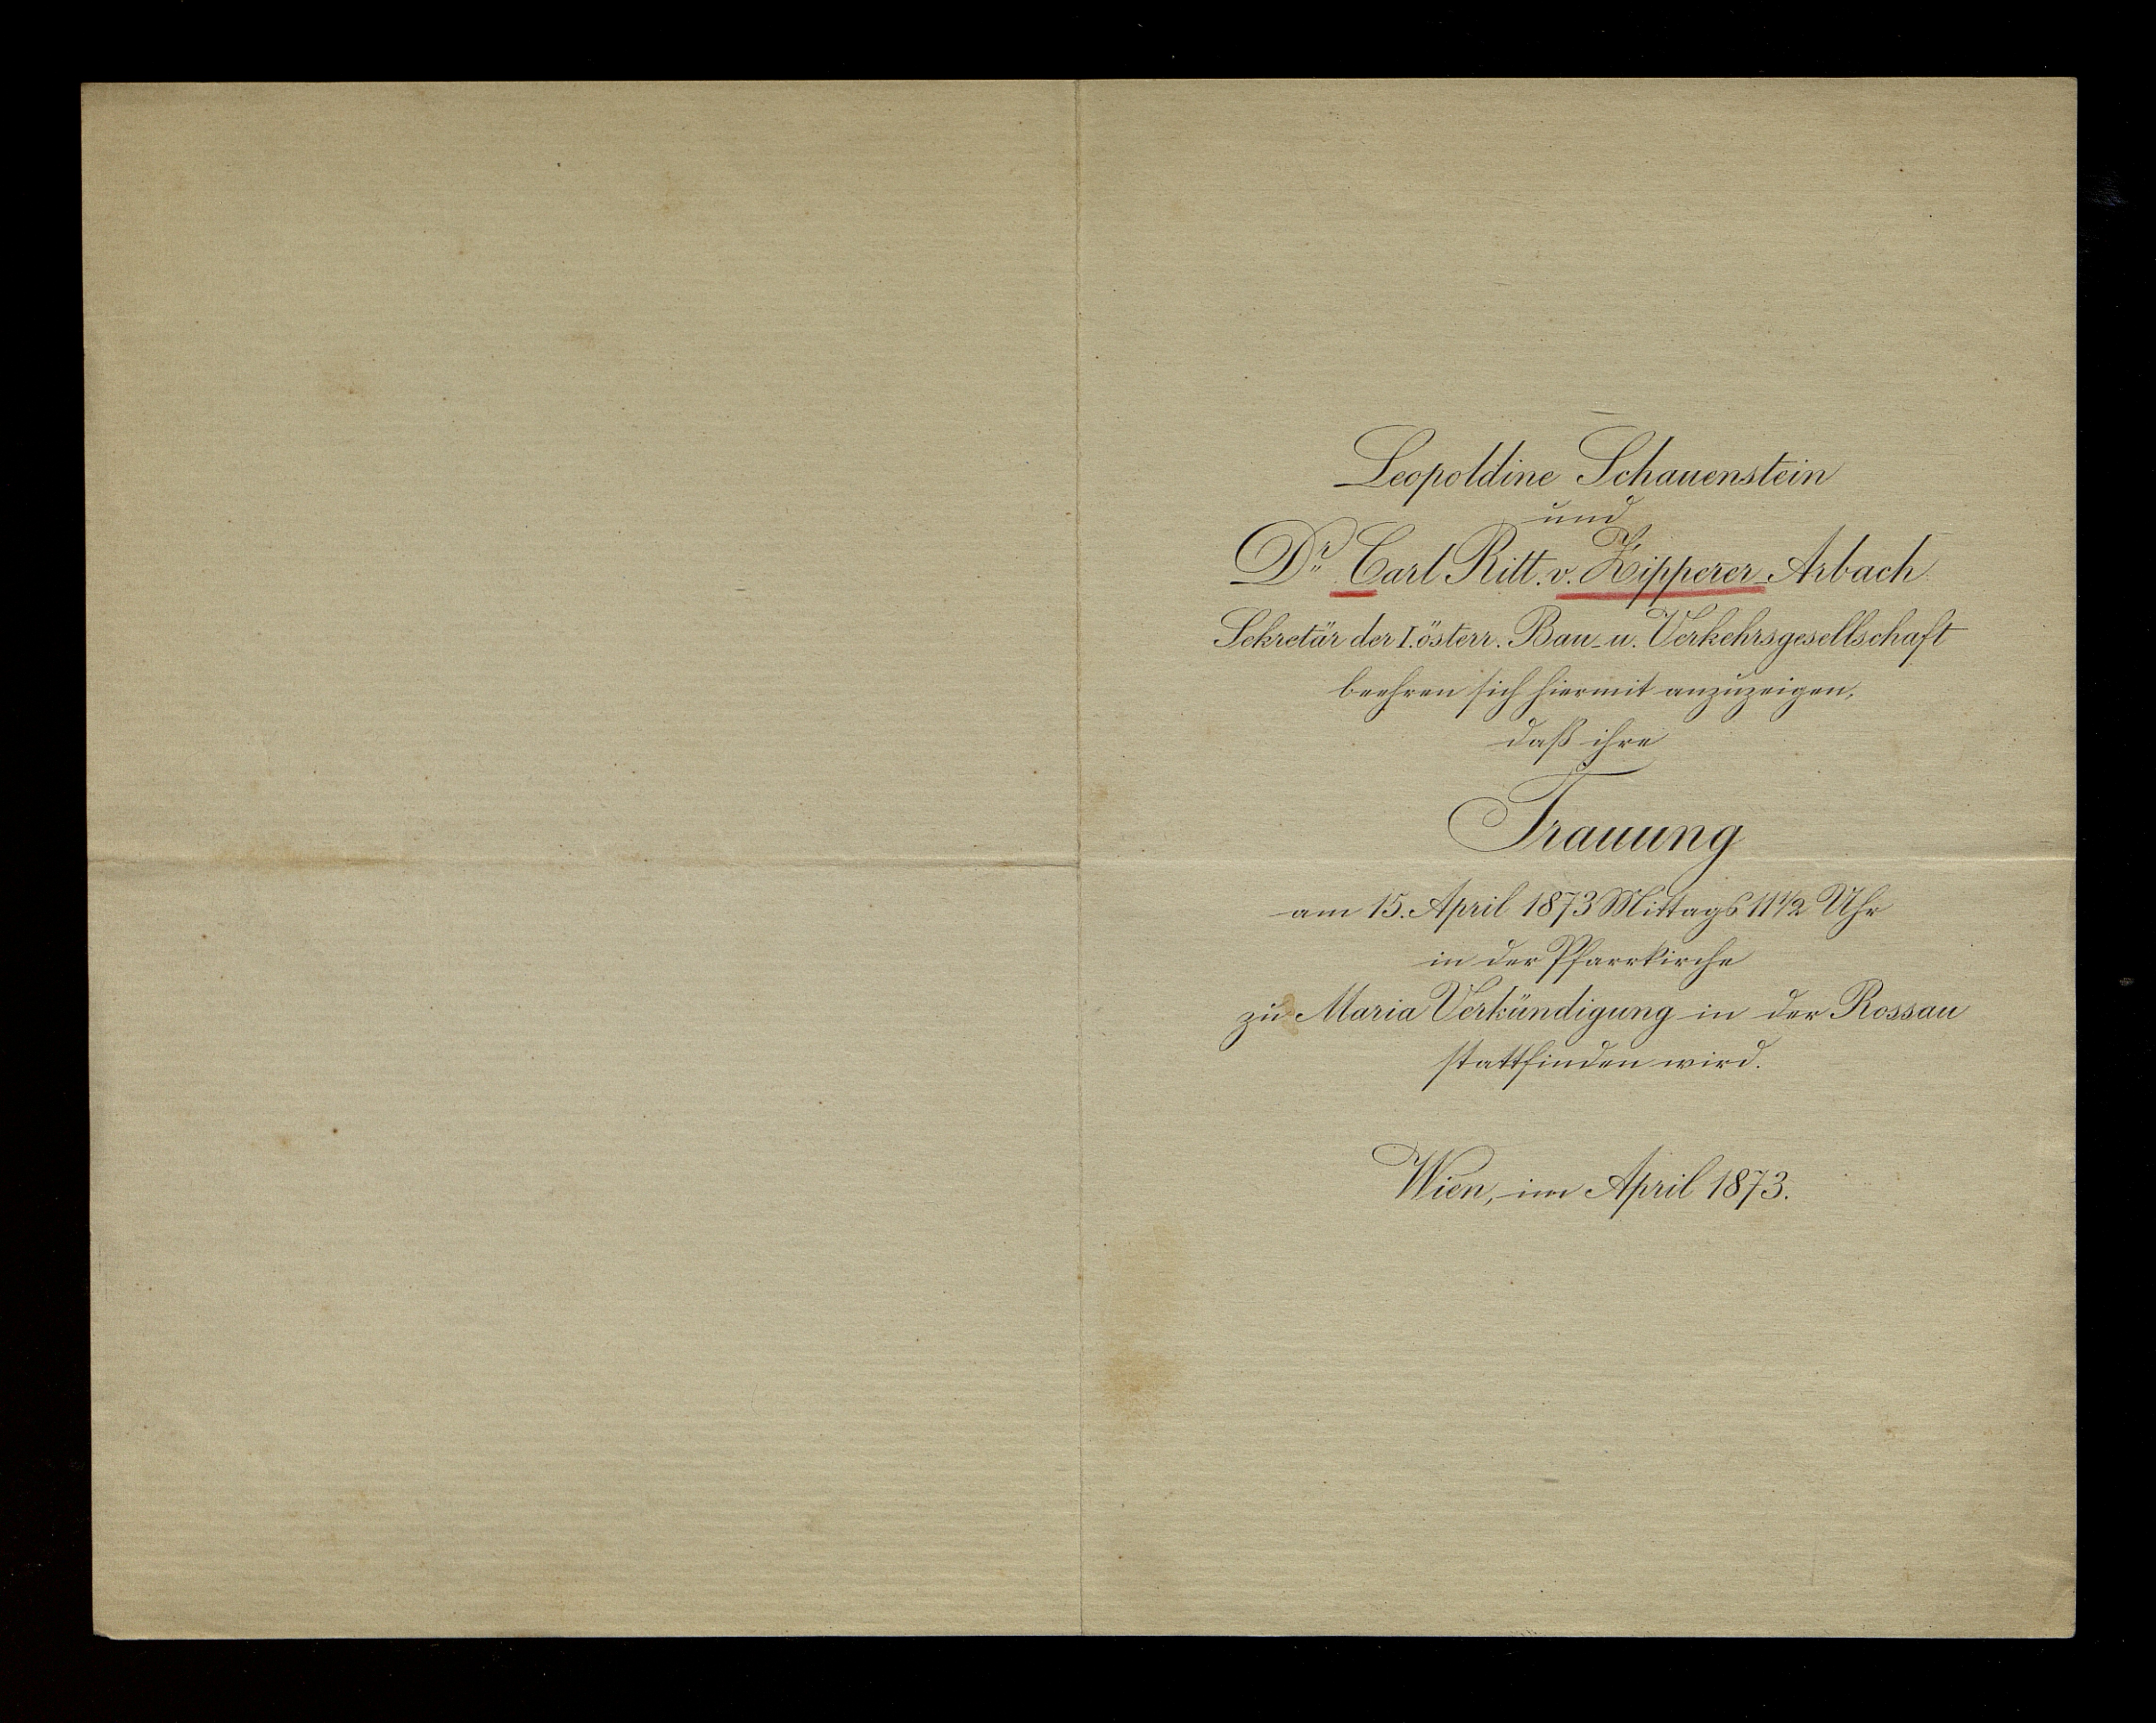 Leopoldine Schauenstein
und
Dr. Carl Ritt. v. Zipperer-Arbach
Sekretär der I. österr. Bau- u. Verkehrsgesellschaft
beehren sich hiermit anzuzeigen,
daß ihre
Trauung
am 15. April 1873 Mittags 11 1/2 Uhr
in der Pfarrkirche
zu Maria Verkündigung in der Rossau
stattfinden wird.
Wien, im April 1873.